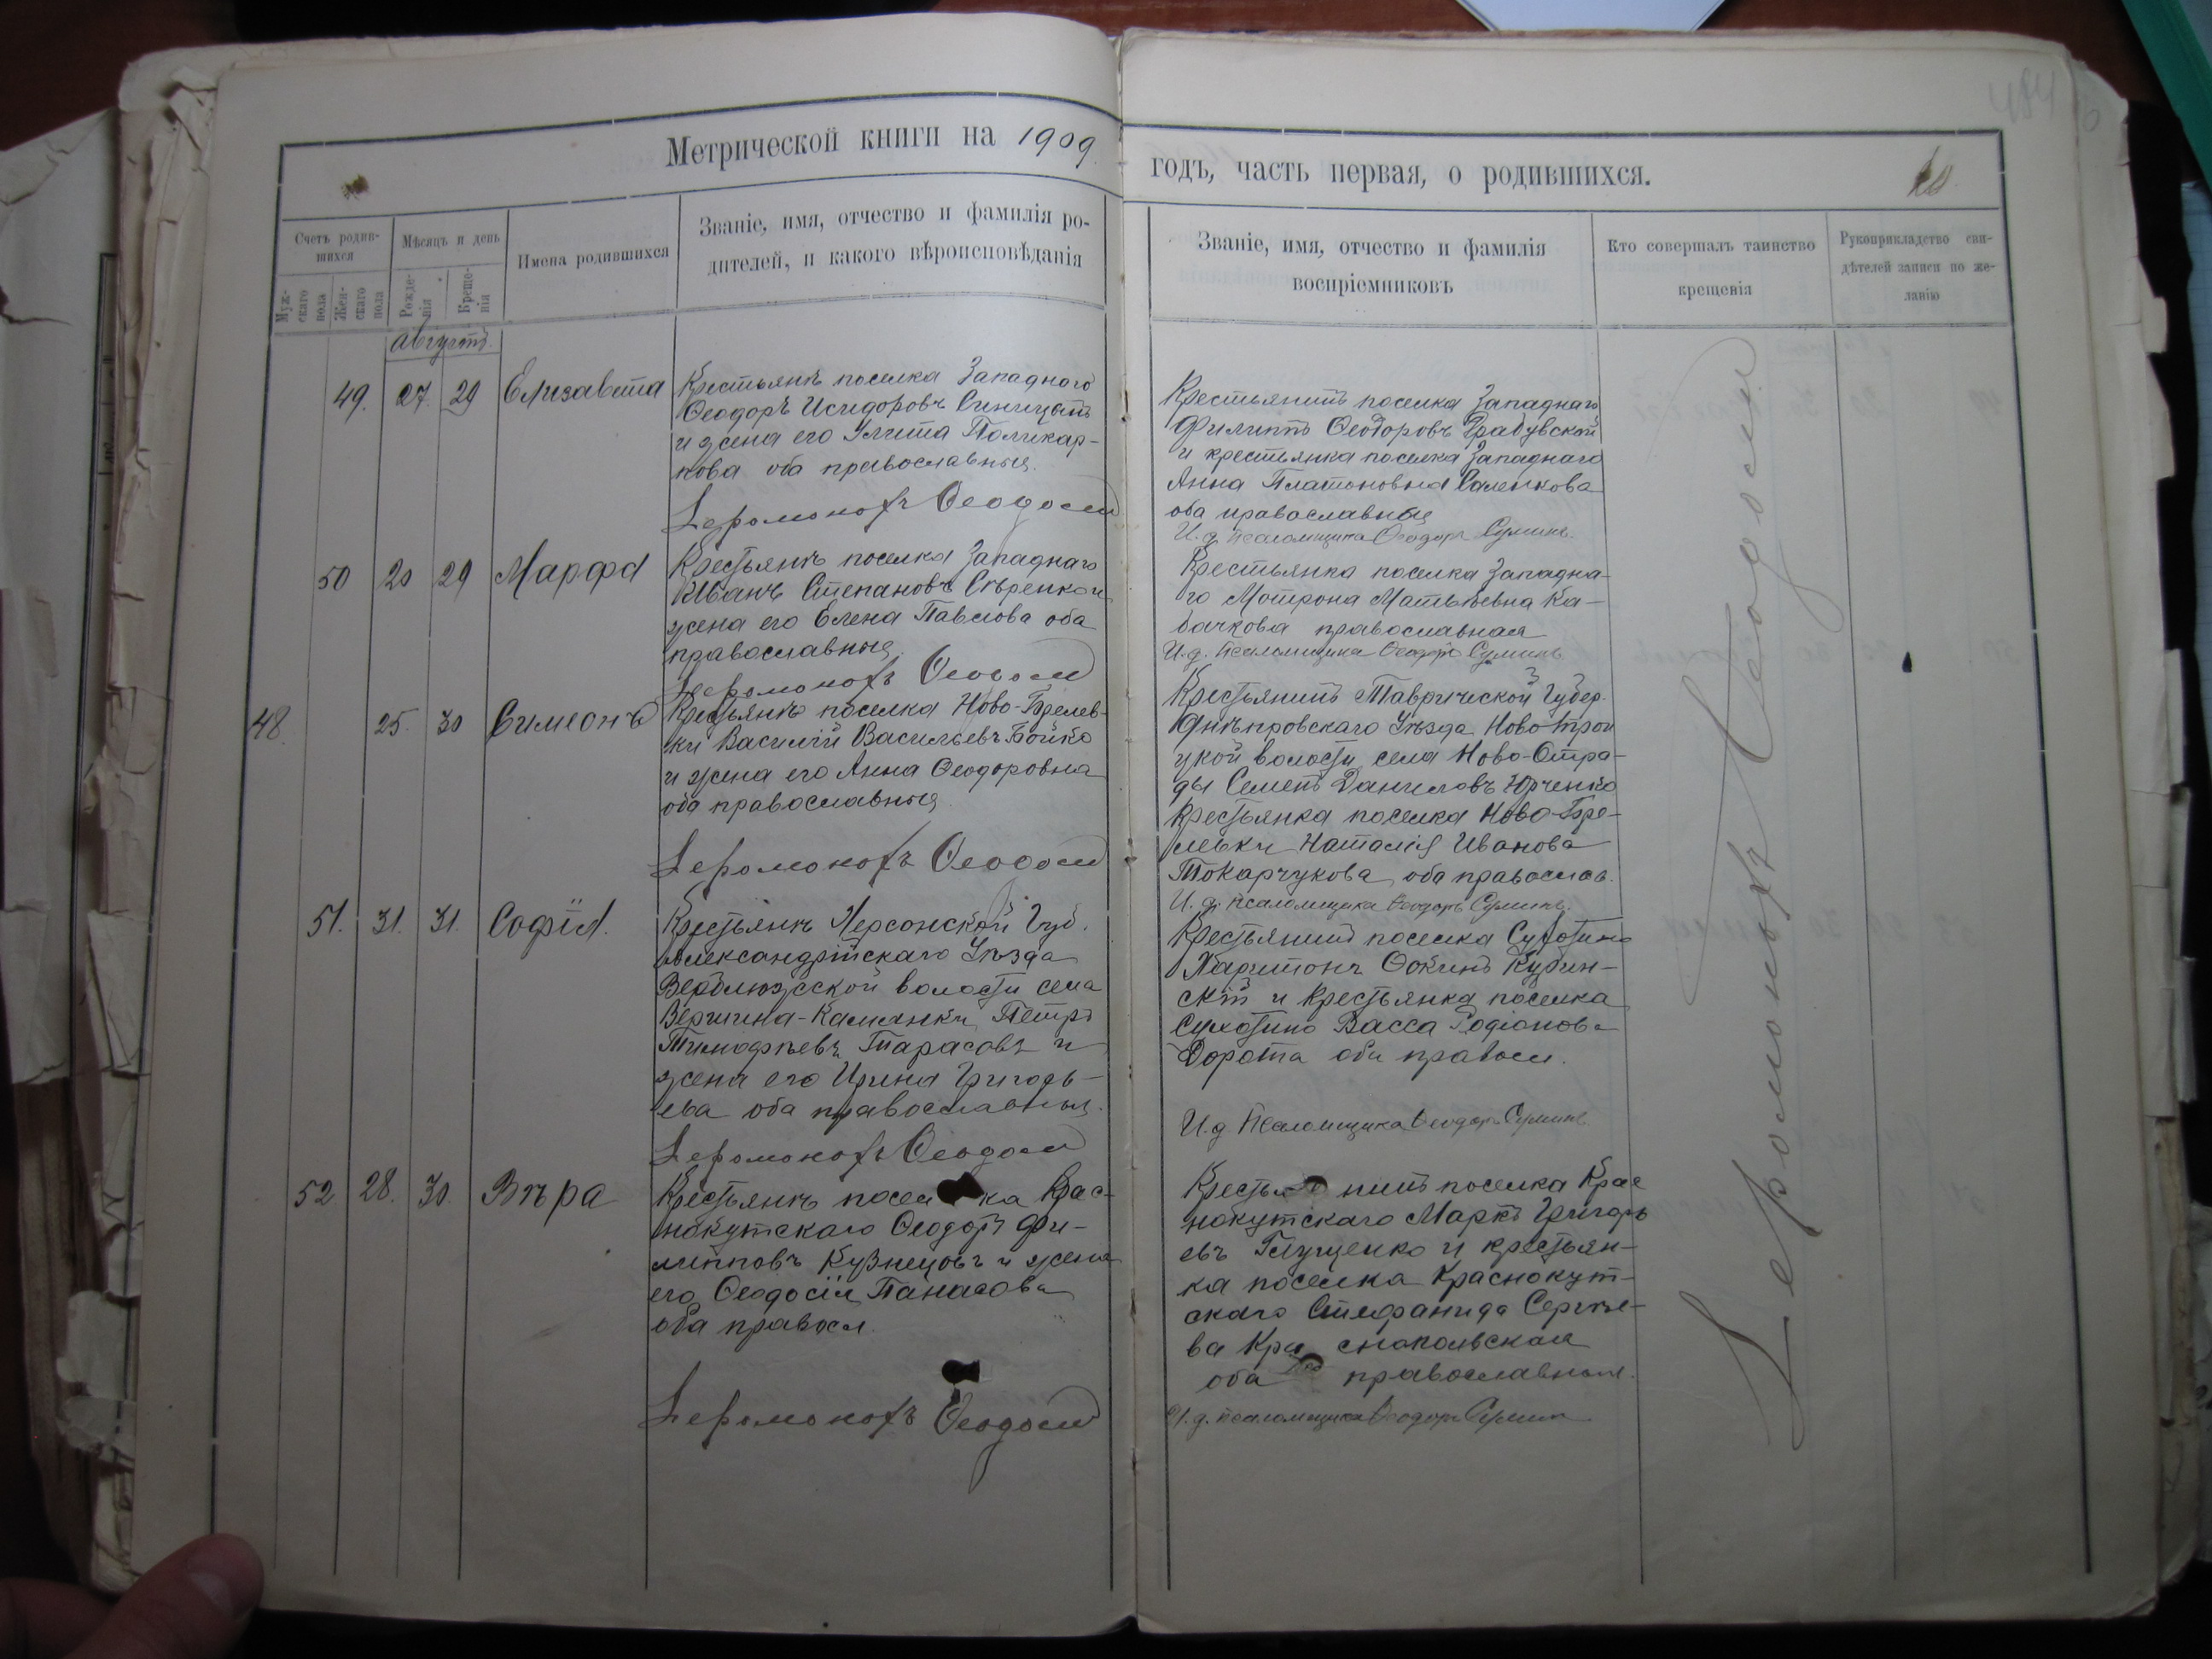 Метрической книги на 1909
годъ, часть первая, о родившихся.
Счетъ родив-
шихся
Мѣсяцъ и день
Имена родившихся
Званіе, имя, отчество и фамилія ро-
дителей, и какого вѣроисповѣданія
Муж-
скаго
пола
Жен-
скаго
пола
Рожде-
нія
Креще-
нія
Званіе, имя, отчество и фамилія
воспріемниковъ
Кто совершалъ таинство
крещенія
Рукоприкладство сви-
дѣтелей записи по же-
ланію
Августъ.
49. 27. 29 Елизавета
Крестьянъ поселка Западнаго
Ѳеодоръ Исидоровъ
и жена его Улита Поликар-
пова оба православныя.
Іеромонахъ Ѳеодосій
Крестьянинъ поселка Западнаго
Филиппъ Ѳеодоровъ Грабувской
и крестьянка поселка Западнаго
Анна Платоновна
оба православныя
И. д. псаломщика Ѳеодоръ Суминъ.
50 20 29 Марфа
Крестьянъ поселка Западнаго
Иванъ Степановъ Сѣренко и
жена его Елена Павлова оба
православныя.
Іеромонахъ Ѳеодосій
Крестьянка поселка Западна-
го Мотрона Матвѣевна Ка-
бачкова православная
И. д. псаломщика Ѳеодоръ Суминъ
48. 25. 30 Симеонъ
Крестьянъ поселка Ново-Брелев-
ки Василій Васильевъ Бойко
и жена его Анна Ѳеодоровна
оба православныя
Іеромонахъ Ѳеодосій
Крестьянинъ Таврической Губер.
Днѣпровскаго Уѣзда Ново-Трои
цкой волости села Ново-Отра-
ды Семенъ Даниловъ Юрченко
Крестьянка поселка Ново-Бре-
левки Наталія Иванова
Токарчукова оба православ.
И. д. псаломщика Ѳеодоръ Суминъ.
51. 31. 31. Софія.
Крестьянъ Херсонской Губ.
Александрійскаго Уѣзда
Верблюжской волости села
Вершина-Каменки Петръ
Тимофѣевъ Тарасовъ и
жена его Ирина Григорь-
ева оба православныя.
Іеромонахъ Ѳеодосій
Крестьянинъ поселка Сухотино
Харитонъ Ѳокинъ
скій и крестьянка поселка
Сухотино Васса Родіонова
Дорота оба правосл.
И. д. псаломщика Ѳеодоръ Суминъ
52 28. 30. Вѣра
Крестьянъ поселка Крас-
нокутскаго Ѳеодоръ Фи-
липповъ Кузнецовъ и жена
его Ѳеодосія Панасова
оба правосл.
Іеромонахъ Ѳеодосій
Крестьянинъ поселка Крас
нокутскаго Маркъ Григорь
евъ Глущенко и крестьян-
ка поселка Краснокут-
скаго Стефанида Сергѣе-
ва Краснопольская
оба православныя.
И. д. псаломщика Ѳеодоръ Суминъ
Іеромонахъ Ѳеодосій